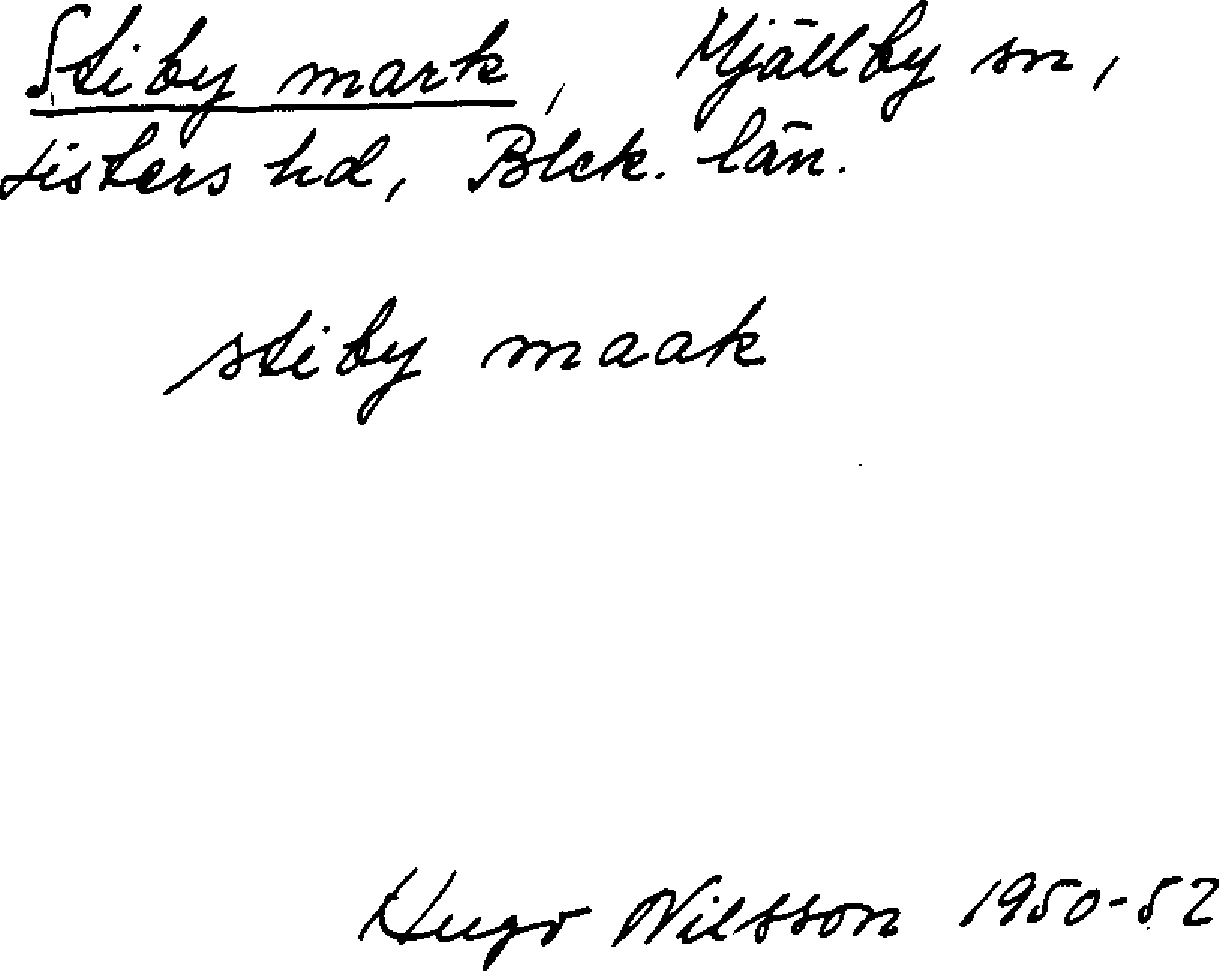 Stiby mark, Mjällby sn,
Listers hd, Blek. län.
stiby maak
Hugo Nilsson 1950-52